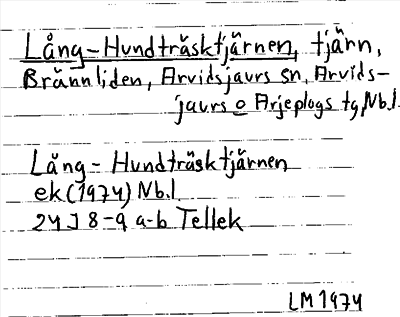 Lång-Hundträsktjärnen, tjärn,
Brännliden, Arvidsjaurs sn, Arvids-
jaurs o Arjeplogs tg, Nb.l.
Lång-Hundträsktjärnen
ek (1974) Nb.l.
24 J 8-9 a-b Tellek
LM 1974